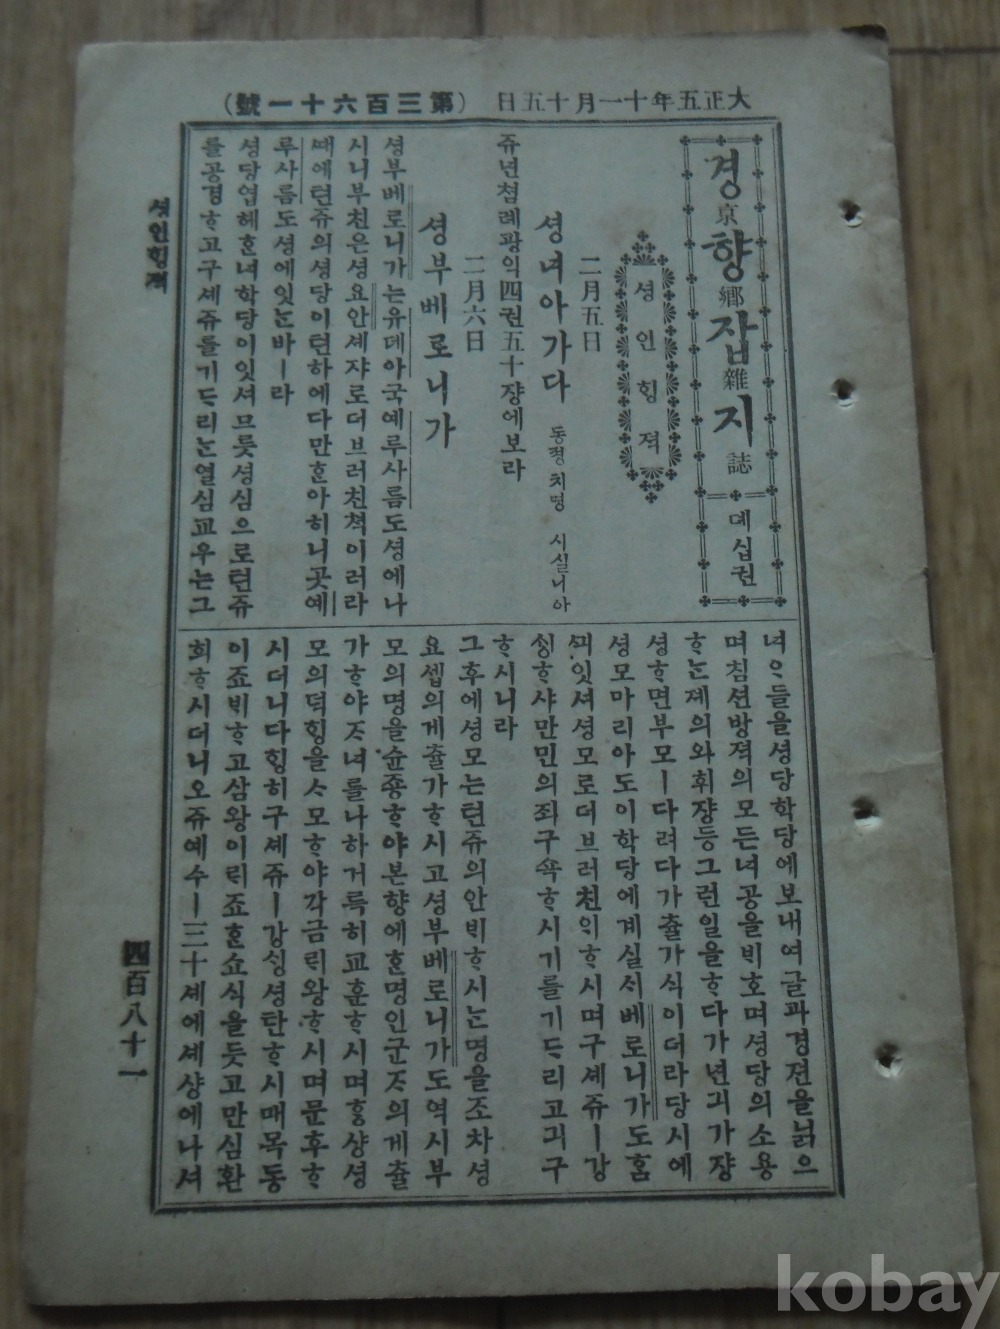 大正五年十一月十五日 (第三百六十一號)
경京향鄕잡雜지誌 뎨십권
셩인ᄒᆡᆼ젹
二月五日
셩녀아가다 동졍치명 시실니아
쥬년쳠례광익四권五十쟝에보라
二月六日
셩부베로니가
셩부베로니가는유데아국예루사름도셩에나
시니부친은셩요안셰쟈로더브러친쳑이러라
때에텬쥬의셩당이텬하에다만ᄒᆞᆫ아히니곳예
루사름도셩에잇ᄂᆞᆫ바ㅣ라
셩당엽헤ᄒᆞᆫ녀학당이잇셔므릇셩심으로텬쥬
를공경ᄒᆞ고구셰쥬를기ᄃᆞ리ᄂᆞᆫ열심교우는그
녀ᄋᆞ들을셩당학당에보내여글과경젼을닑으
며침션방젹의모든녀공을ᄇᆡ호며셩당의소용
ᄒᆞᄂᆞᆫ졔의와휘쟝등그런일을ᄒᆞ다가년긔가쟝
셩ᄒᆞ면부모ㅣ다려다가츌가식이더라당시에
셩모마리아도이학당에계실ᄉᆡ베로니가도홈
ᄭᅴ잇셔셩모로더브러친ᄋᆡᆨᄒᆞ시며구셰쥬ㅣ강
ᄉᆡᆼᄒᆞ샤만민의죄구쇽ᄒᆞ시기를기ᄃᆞ리고긔구
ᄒᆞ시니라
그후에셩모는텬쥬의안ᄇᆡᄒᆞ시ᄂᆞᆫ명을조차셩
요셉의게츌가ᄒᆞ시고셩부베로니가도역시부
모의명을슌죵ᄒᆞ야본향에ᄒᆞᆫ명인군ᄌᆞ의게츌
가ᄒᆞ야ᄌᆞ녀를나하거륵히교훈ᄒᆞ시며ᄒᆞᆼ샹셩
모의덕ᄒᆡᆼ을ᄉᆞ모ᄒᆞ야각금ᄅᆡ왕ᄒᆞ시며문후ᄒᆞ
시더니다ᄒᆡᆼ히구셰쥬ㅣ강ᄉᆡᆼ셩탄ᄒᆞ시매목동
이죠ᄇᆡᄒᆞ고삼왕이ᄅᆡ죠ᄒᆞᆫ쇼식을듯고만심환
희ᄒᆞ시더니오쥬예수ㅣ三十셰에셰샹에나셔
셩인ᄒᆡᆼ젹
四百八十一
kobay